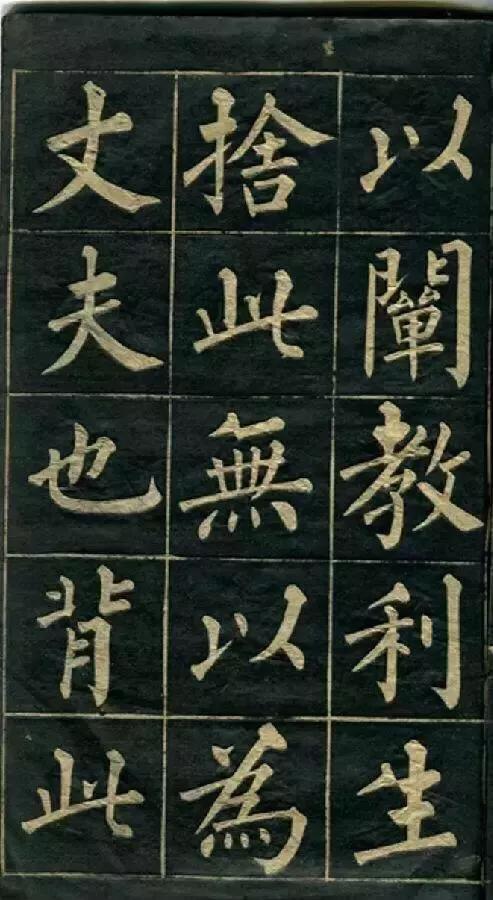 以闡教利生
捨此無以為
丈夫也背此